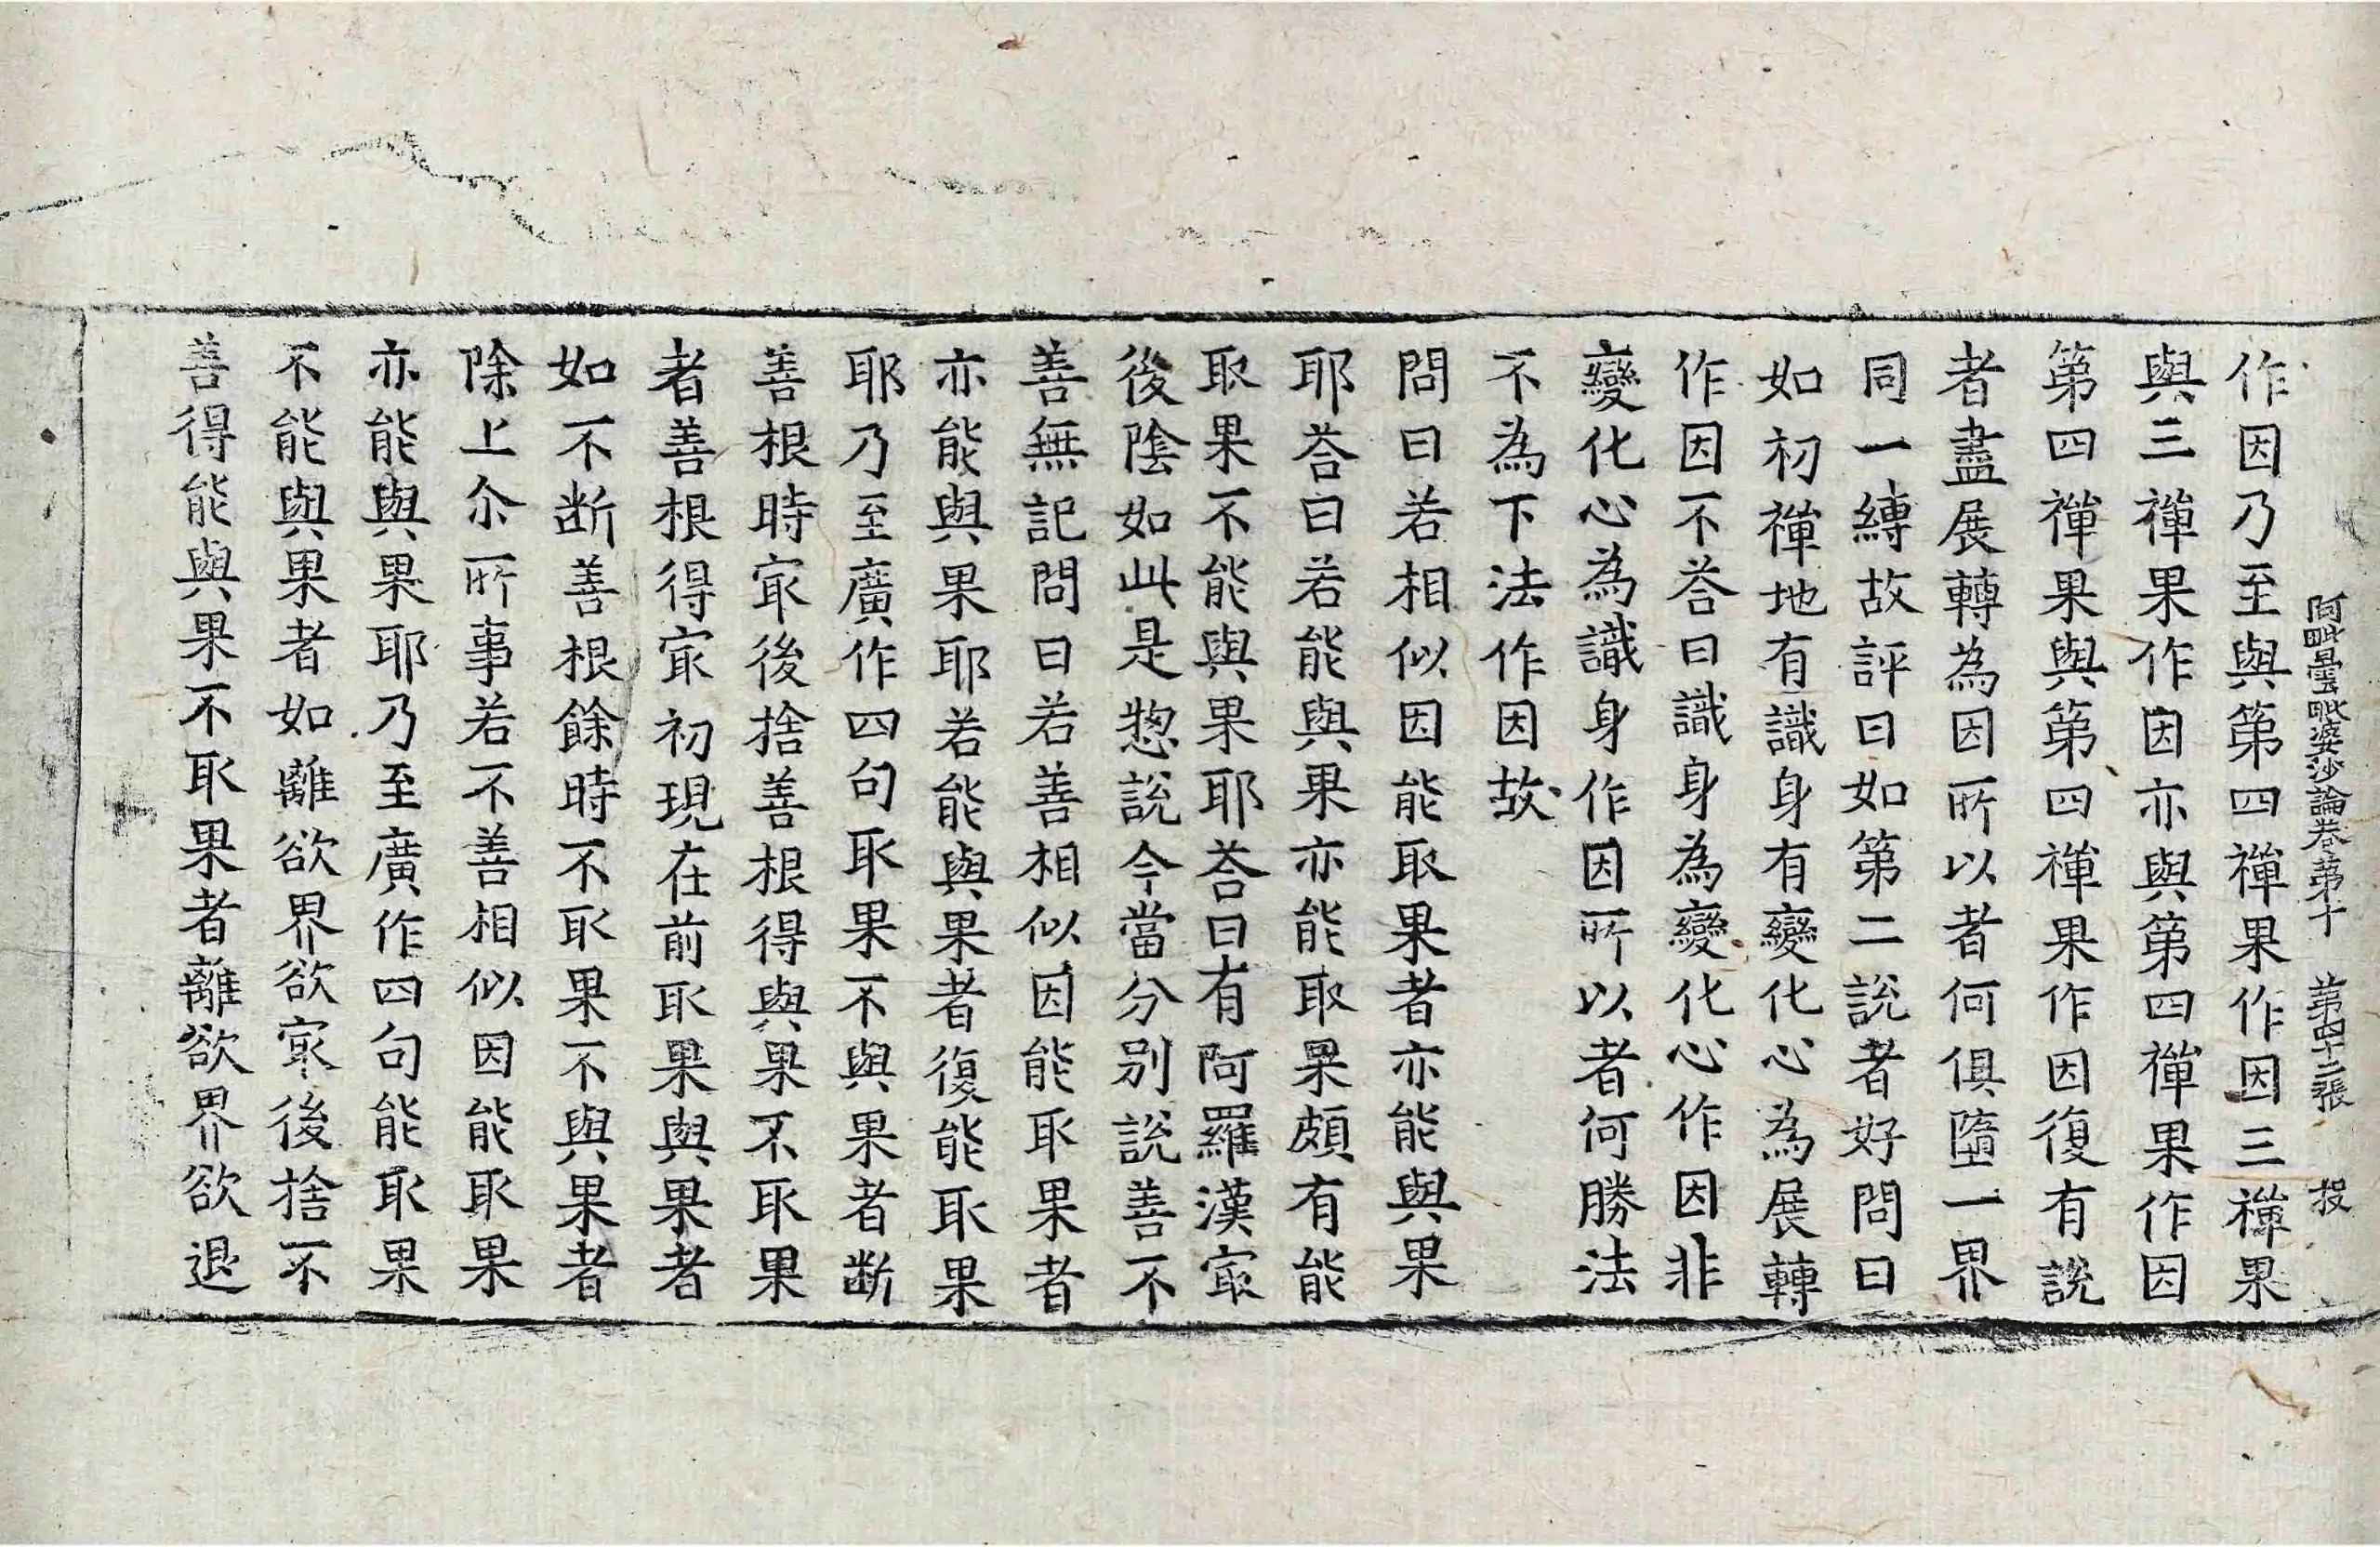 阿毗曇毗婆沙論卷第十 第四十二張 投
作因乃至與第四禪果作因三禪果
與三禪果作因亦與第四禪果作因
第四禪果與第四禪果作因復有說
者盡展轉為因所以者何俱墮一界
同一縛故評曰如第二說者好問曰
如初禪地有識身有變化心為展轉
作因不荅曰識身為變化心作因非
變化心為識身作因所以者何勝法
不為下法作因故
問曰若相似因能取果者亦能與果
耶荅曰若能與果亦能取果頗有能
取果不能與果耶荅曰有阿羅漢㝡
後陰如此是惣說今當分别說善不
善無記問曰若善相似因能取果者
亦能與果耶若能與果者復能取果
耶乃至廣作四句取果不與果者断
善根時㝡後捨善根得與果不取果
者善根得㝡初現在前取果與果者
如不断善根餘時不取果不與果者
除上尒所事若不善相似因能取果
亦能與果耶乃至廣作四句能取果
不能與果者如離欲界欲㝡後捨不
善得能與果不取果者離欲界欲退